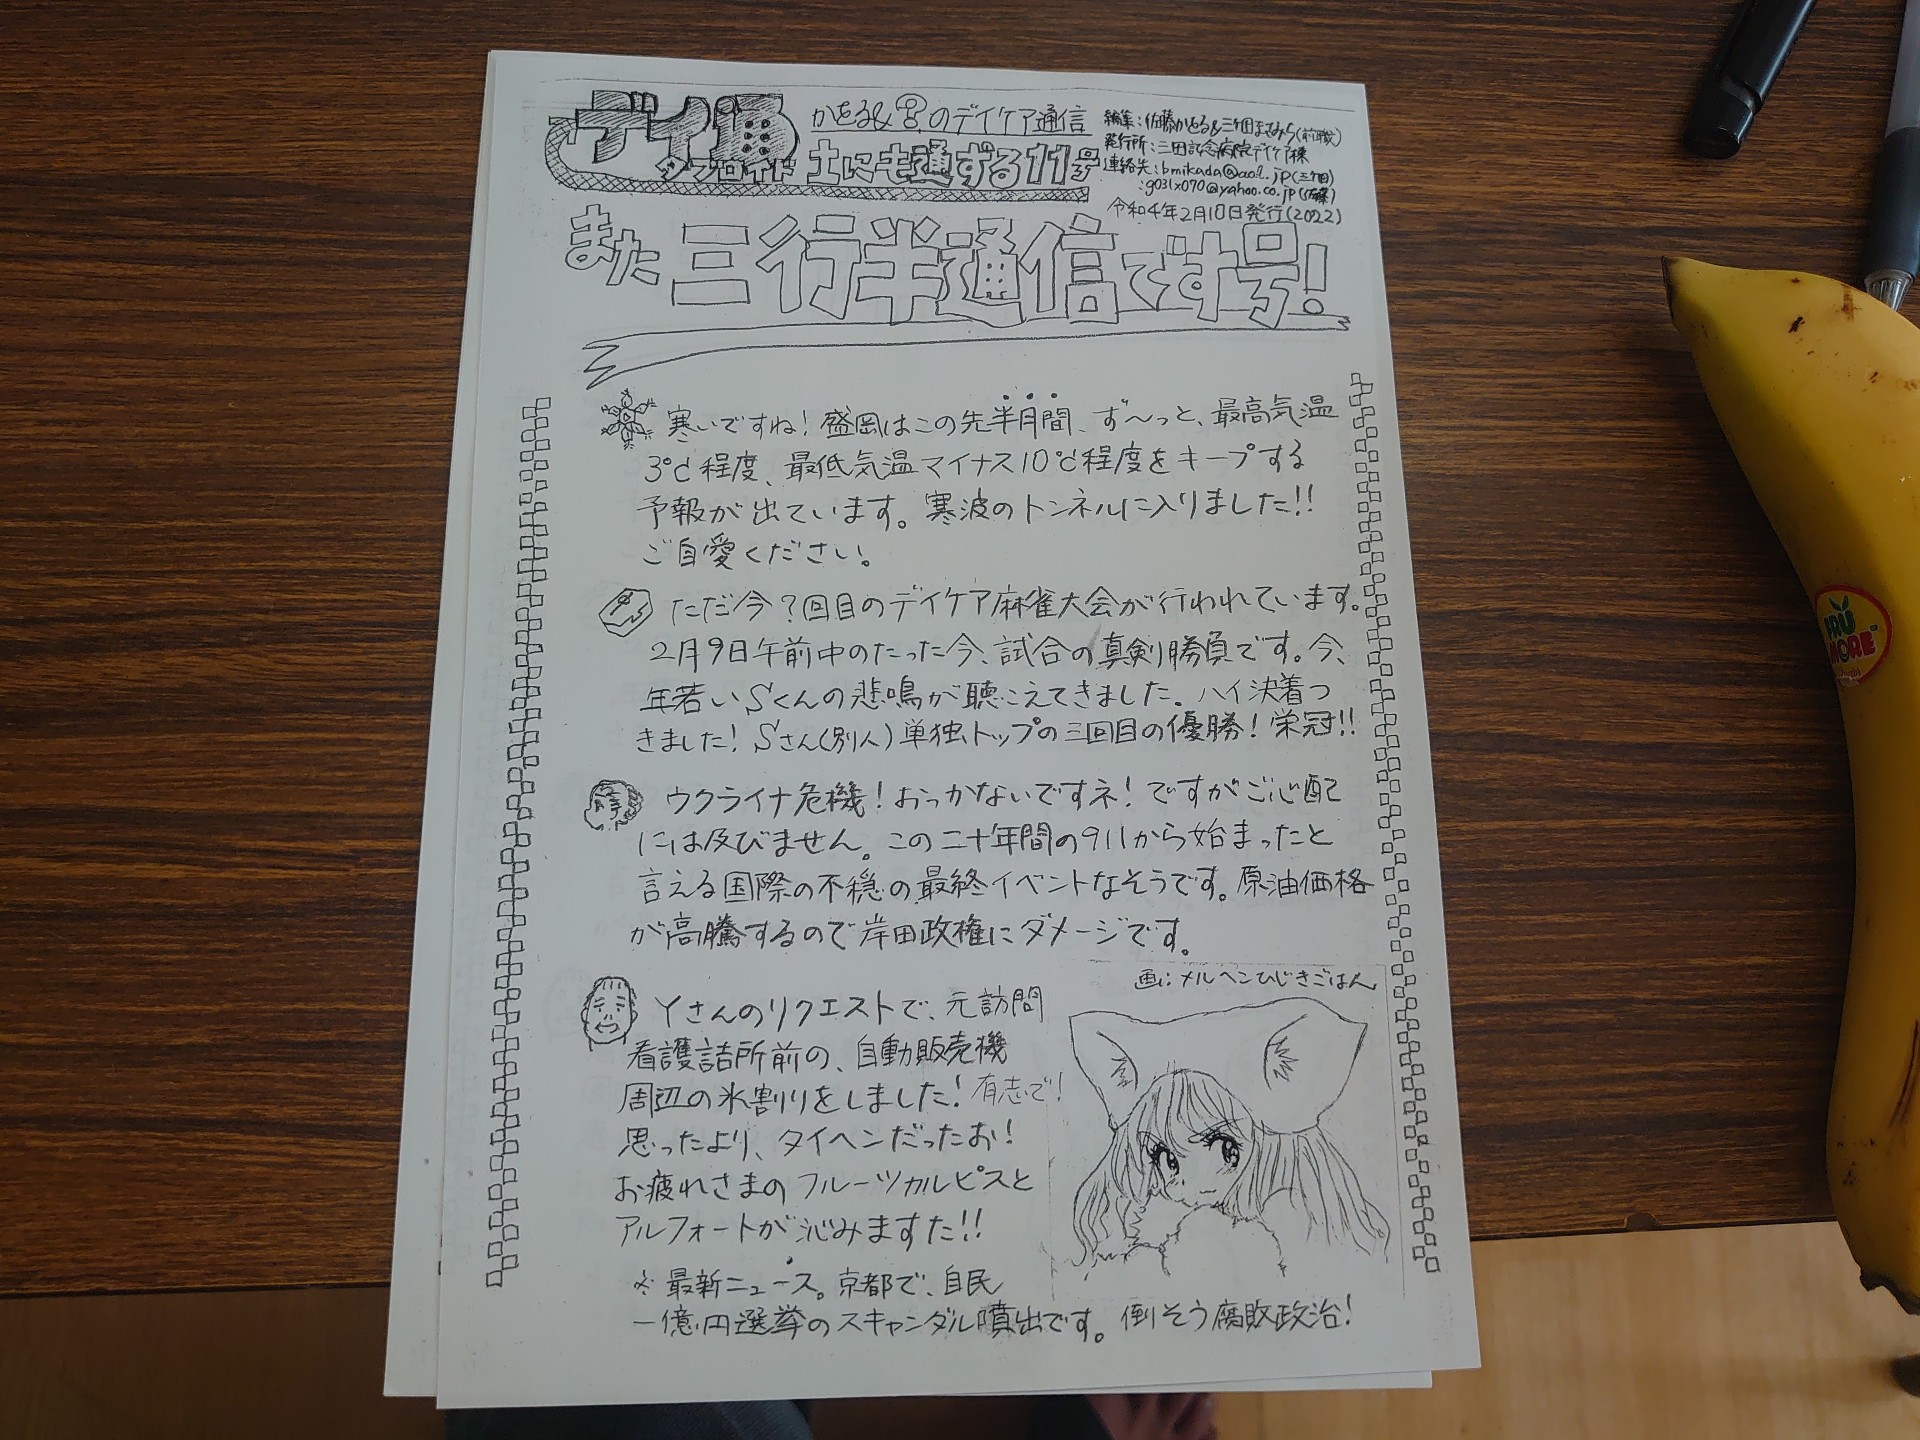 デイ通
タブロイド
かをる&のデイケア通信
土にも通ずる11号
編集:佐藤かをる&三ケ田まさみち(前職)
発行所:三田記念病院デイケア棟
連絡先:bmikada@aol.jp(三ケ田)
:g031x070@yahoo.co.jp(佐藤)
令和4年2月10日発行(2022)
また三行半通信です号!
寒いですね!盛岡はこの先半月間、ず〜っと、最高気温
3℃程度、最低気温マイナス10℃程度をキープする
予報が出ています。寒波のトンネルに入りました!!
ご自愛ください。
ただ今?回目のデイケア麻雀大会が行われています。
2月9日午前中のたった今、試合の真剣勝負です。今、
年若いSくんの悲鳴が聴こえてきました。ハイ決着つ
きました!Sさん(別人)単独トップの三回目の優勝!栄冠!!
ウクライナ危機!おっかないですネ!ですがご心配
には及びません。この二十年間の911から始まったと
言える国際の不穏の最終イベントなそうです。原油価格
が高騰するので岸田政権にダメージです。
画:メルヘンひじきごはん
Yさんのリクエストで、元訪問
看護詰所前の、自動販売機
周辺の氷割りをしました!有志で!
思ったより、タイヘンだったお!
お疲れさまのフルーツカルピスと
アルフォートが沁みますた!!
※最新ニュース。京都で、自民
一億円選挙のスキャンダル噴出です。倒そう腐敗政治!
MORE